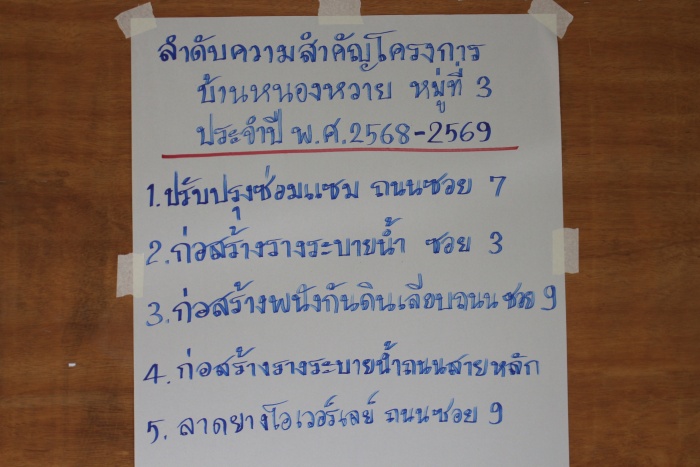 ลำดับความสำคัญโครงการ
บ้านหนองหวาย หมู่ที่ 3
ประจำปี พ.ศ.2568-2569
1.ปรับปรุงซ่อมแซม ถนนซอย 7
2.ก่อสร้างรางระบายน้ำ ซอย 3
3.ก่อสร้างพนังกันดินเลียบถนน ซอย 9
4.ก่อสร้างรางระบายน้ำถนนสายหลัก
5. ลาดยางโอเวอร์เลย์ ถนนซอย 9